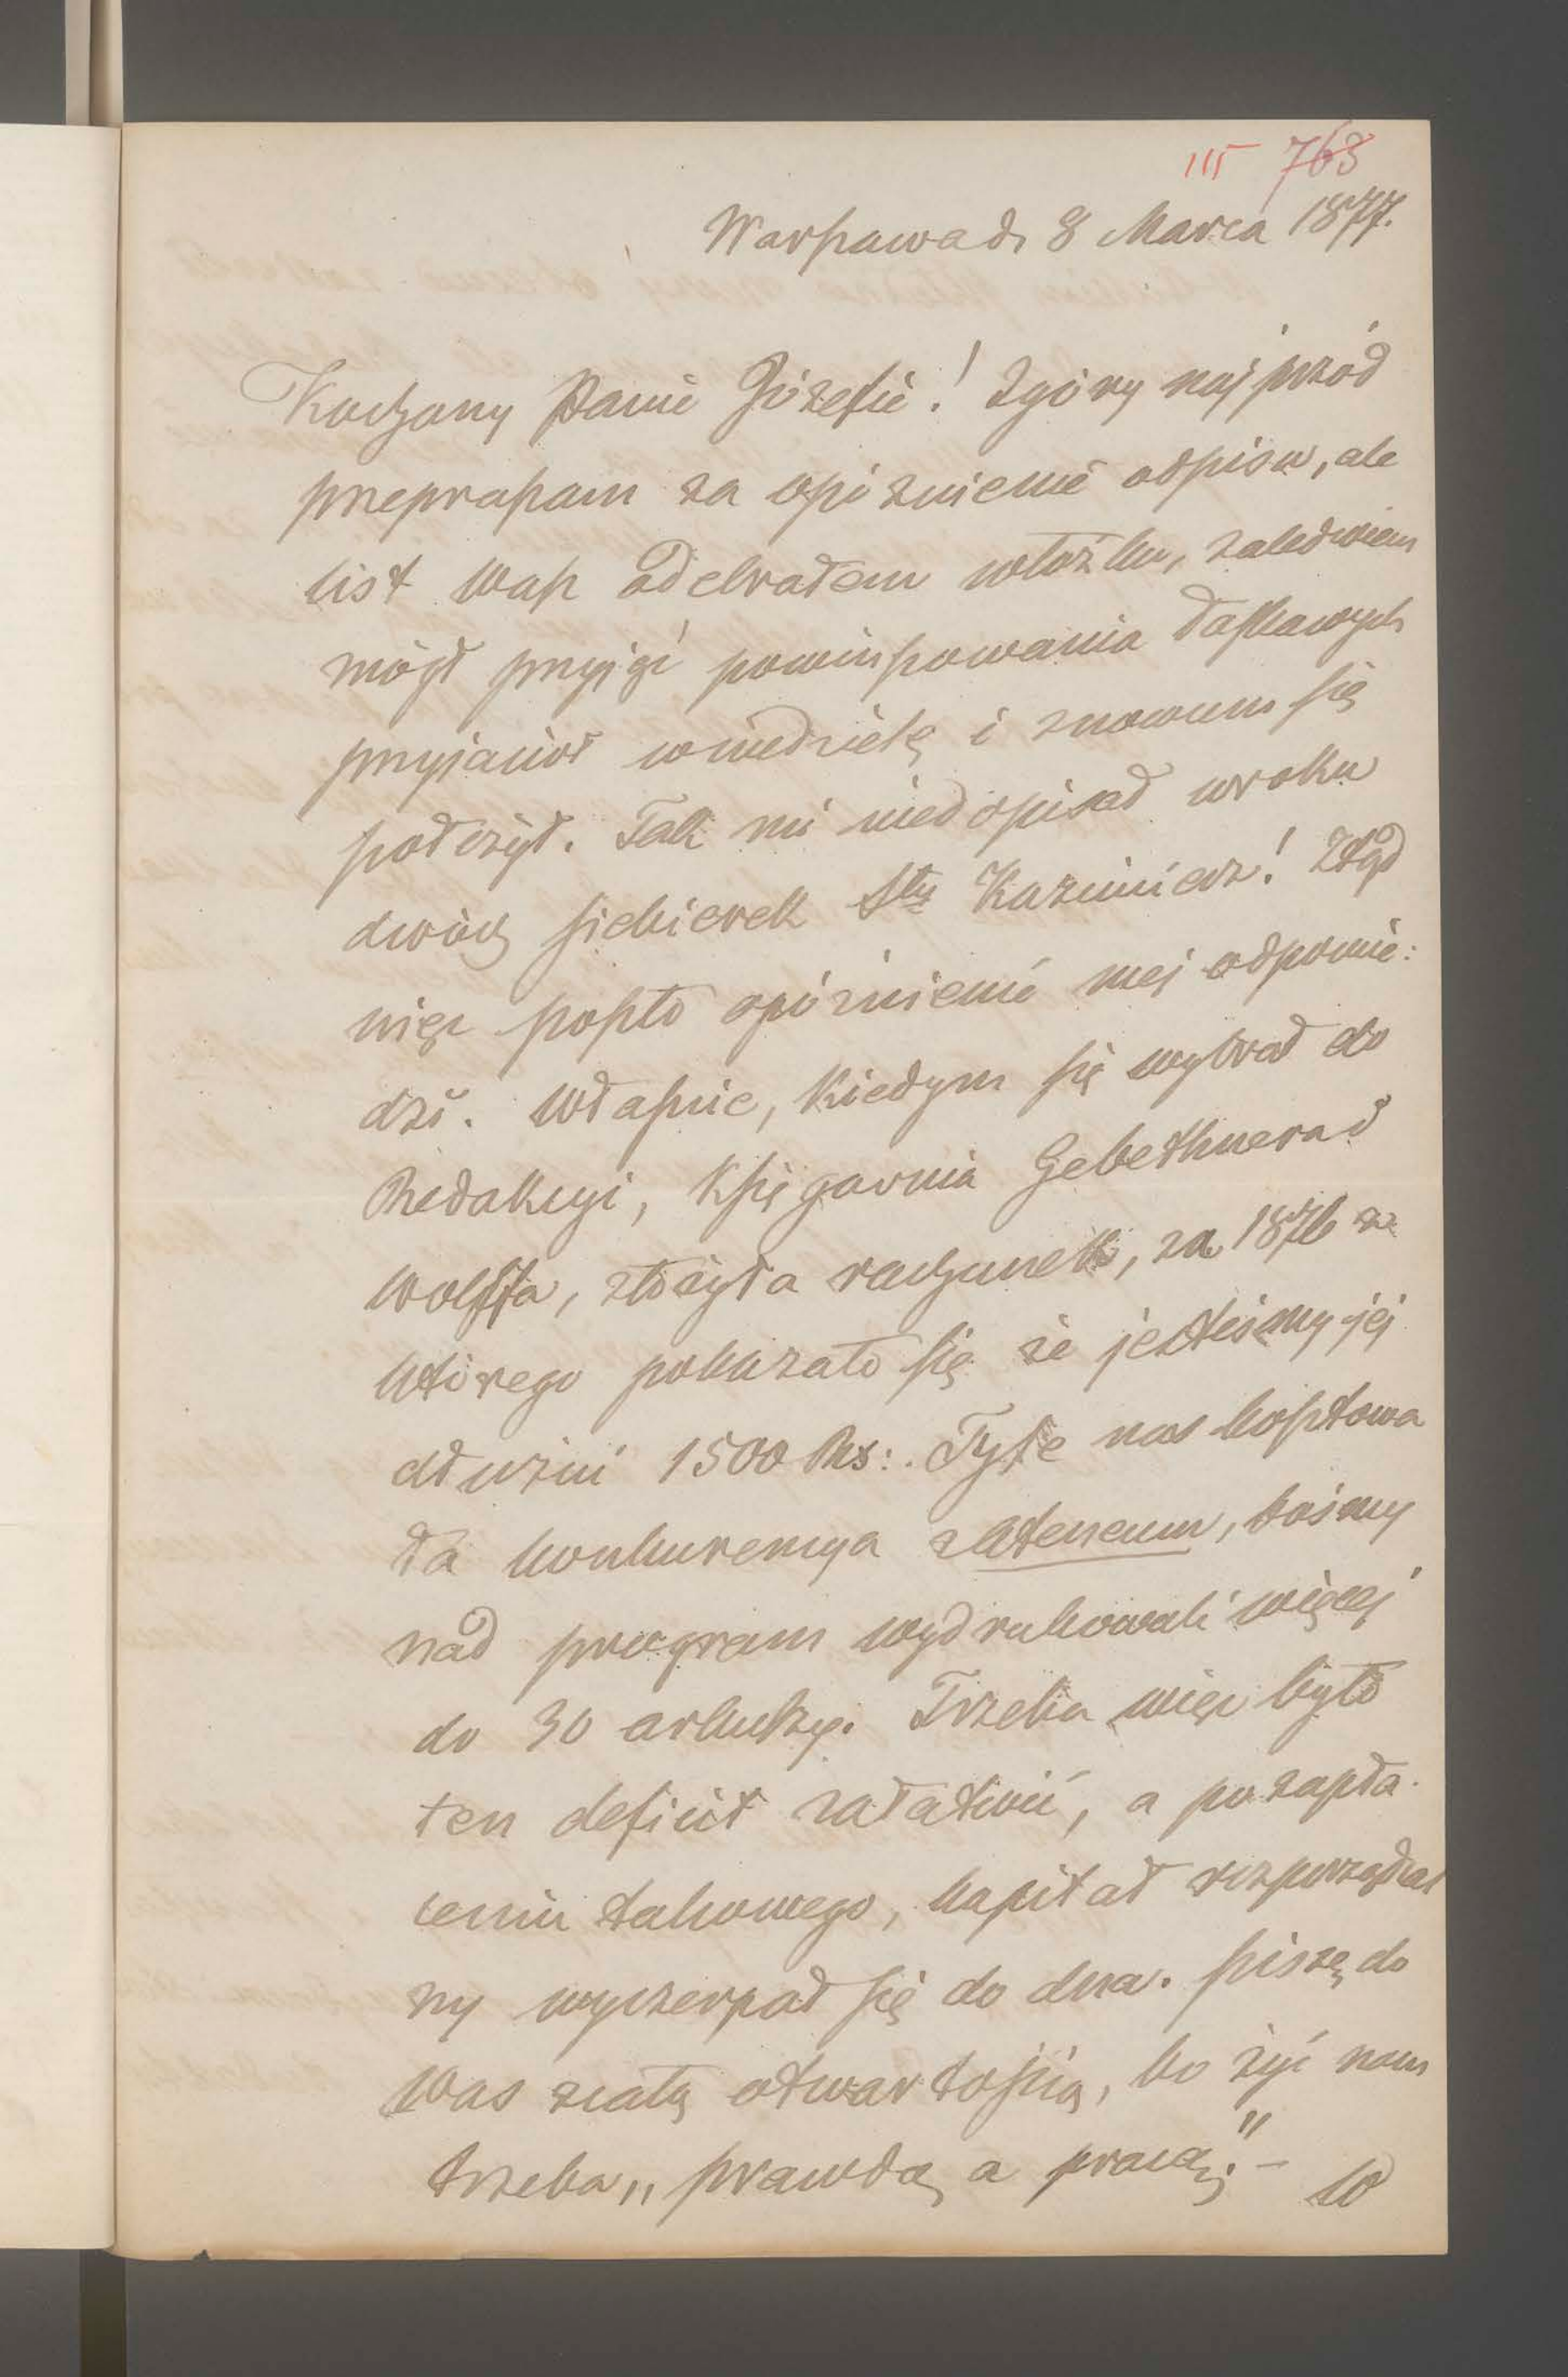 115 763
Warszawa d. 8 Marca 1877.
Kochany Panie Józefie! Zgóry najprzód
przepraszam za opóźnienie odpisu, ale
list wasz odebrałem włóżku, zaledwiem
mógł przyjąć powinszowania łaskawych
przyjaciół wniedzielę i znowum się
położył. Tak mi niedopisał wroku
dwóch siekierek Sty Kazimierz! Ztąd
więc poszło opóźnienie mej odpowie:
dzi. Właśnie, kiedym się wybrał do
Redakcyi, Księgarnia Gebethnera i
Wolffa, złożyła rachunek, za 1876 z
którego pokazało się że jesteśmy jej
dłużni 1500 Rs: Tyle nas kosztowa
ła konkurencya z Ateneum, bośmy
nad program wydrukowali więcej
do 30 arkuszy. Trzeba więc było
ten deficit załatwić, a po zapła-
ceniu takowego, kapitał rozporządzal
ny wyczerpał się do dna. Piszę do
Was zcałą otwartością, bo żyć nam
trzeba „prawdą a pracą." – W